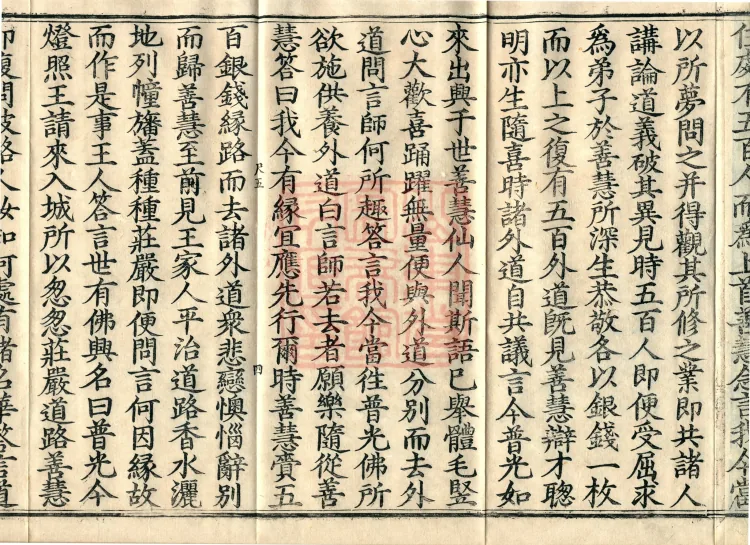 處有五百人而爲上首善慧念言我今當
以所夢問之并得觀其所修之業即共諸人
講論道義破其異見時五百人即便受屈求
爲弟子於善慧所深生恭敬各以銀錢一枚
而以上之復有五百外道旣見善慧辯才聦
明亦生隨喜時諸外道自共議言今普光如
來出興于世善慧仙人聞斯語已舉體毛竪
心大歡喜踊躍無量便與外道分別而去外
道問言師何所趣答言我今當往普光佛所
欲施供養外道白言師若去者願樂隨從善
慧答曰我今有緣宜應先行爾時善慧賫五
尺五 四
百銀錢緣路而去諸外道衆悲戀懊惱辭別
而歸善慧至前見王家人平治道路香水灑
地列幢旛蓋種種莊嚴即便問言何因緣故
而作是事王人答言世有佛興名曰普光今
燈照王請來入城所以怱怱莊嚴道路善慧
即復問彼路人汝知何處有諸名華答言道